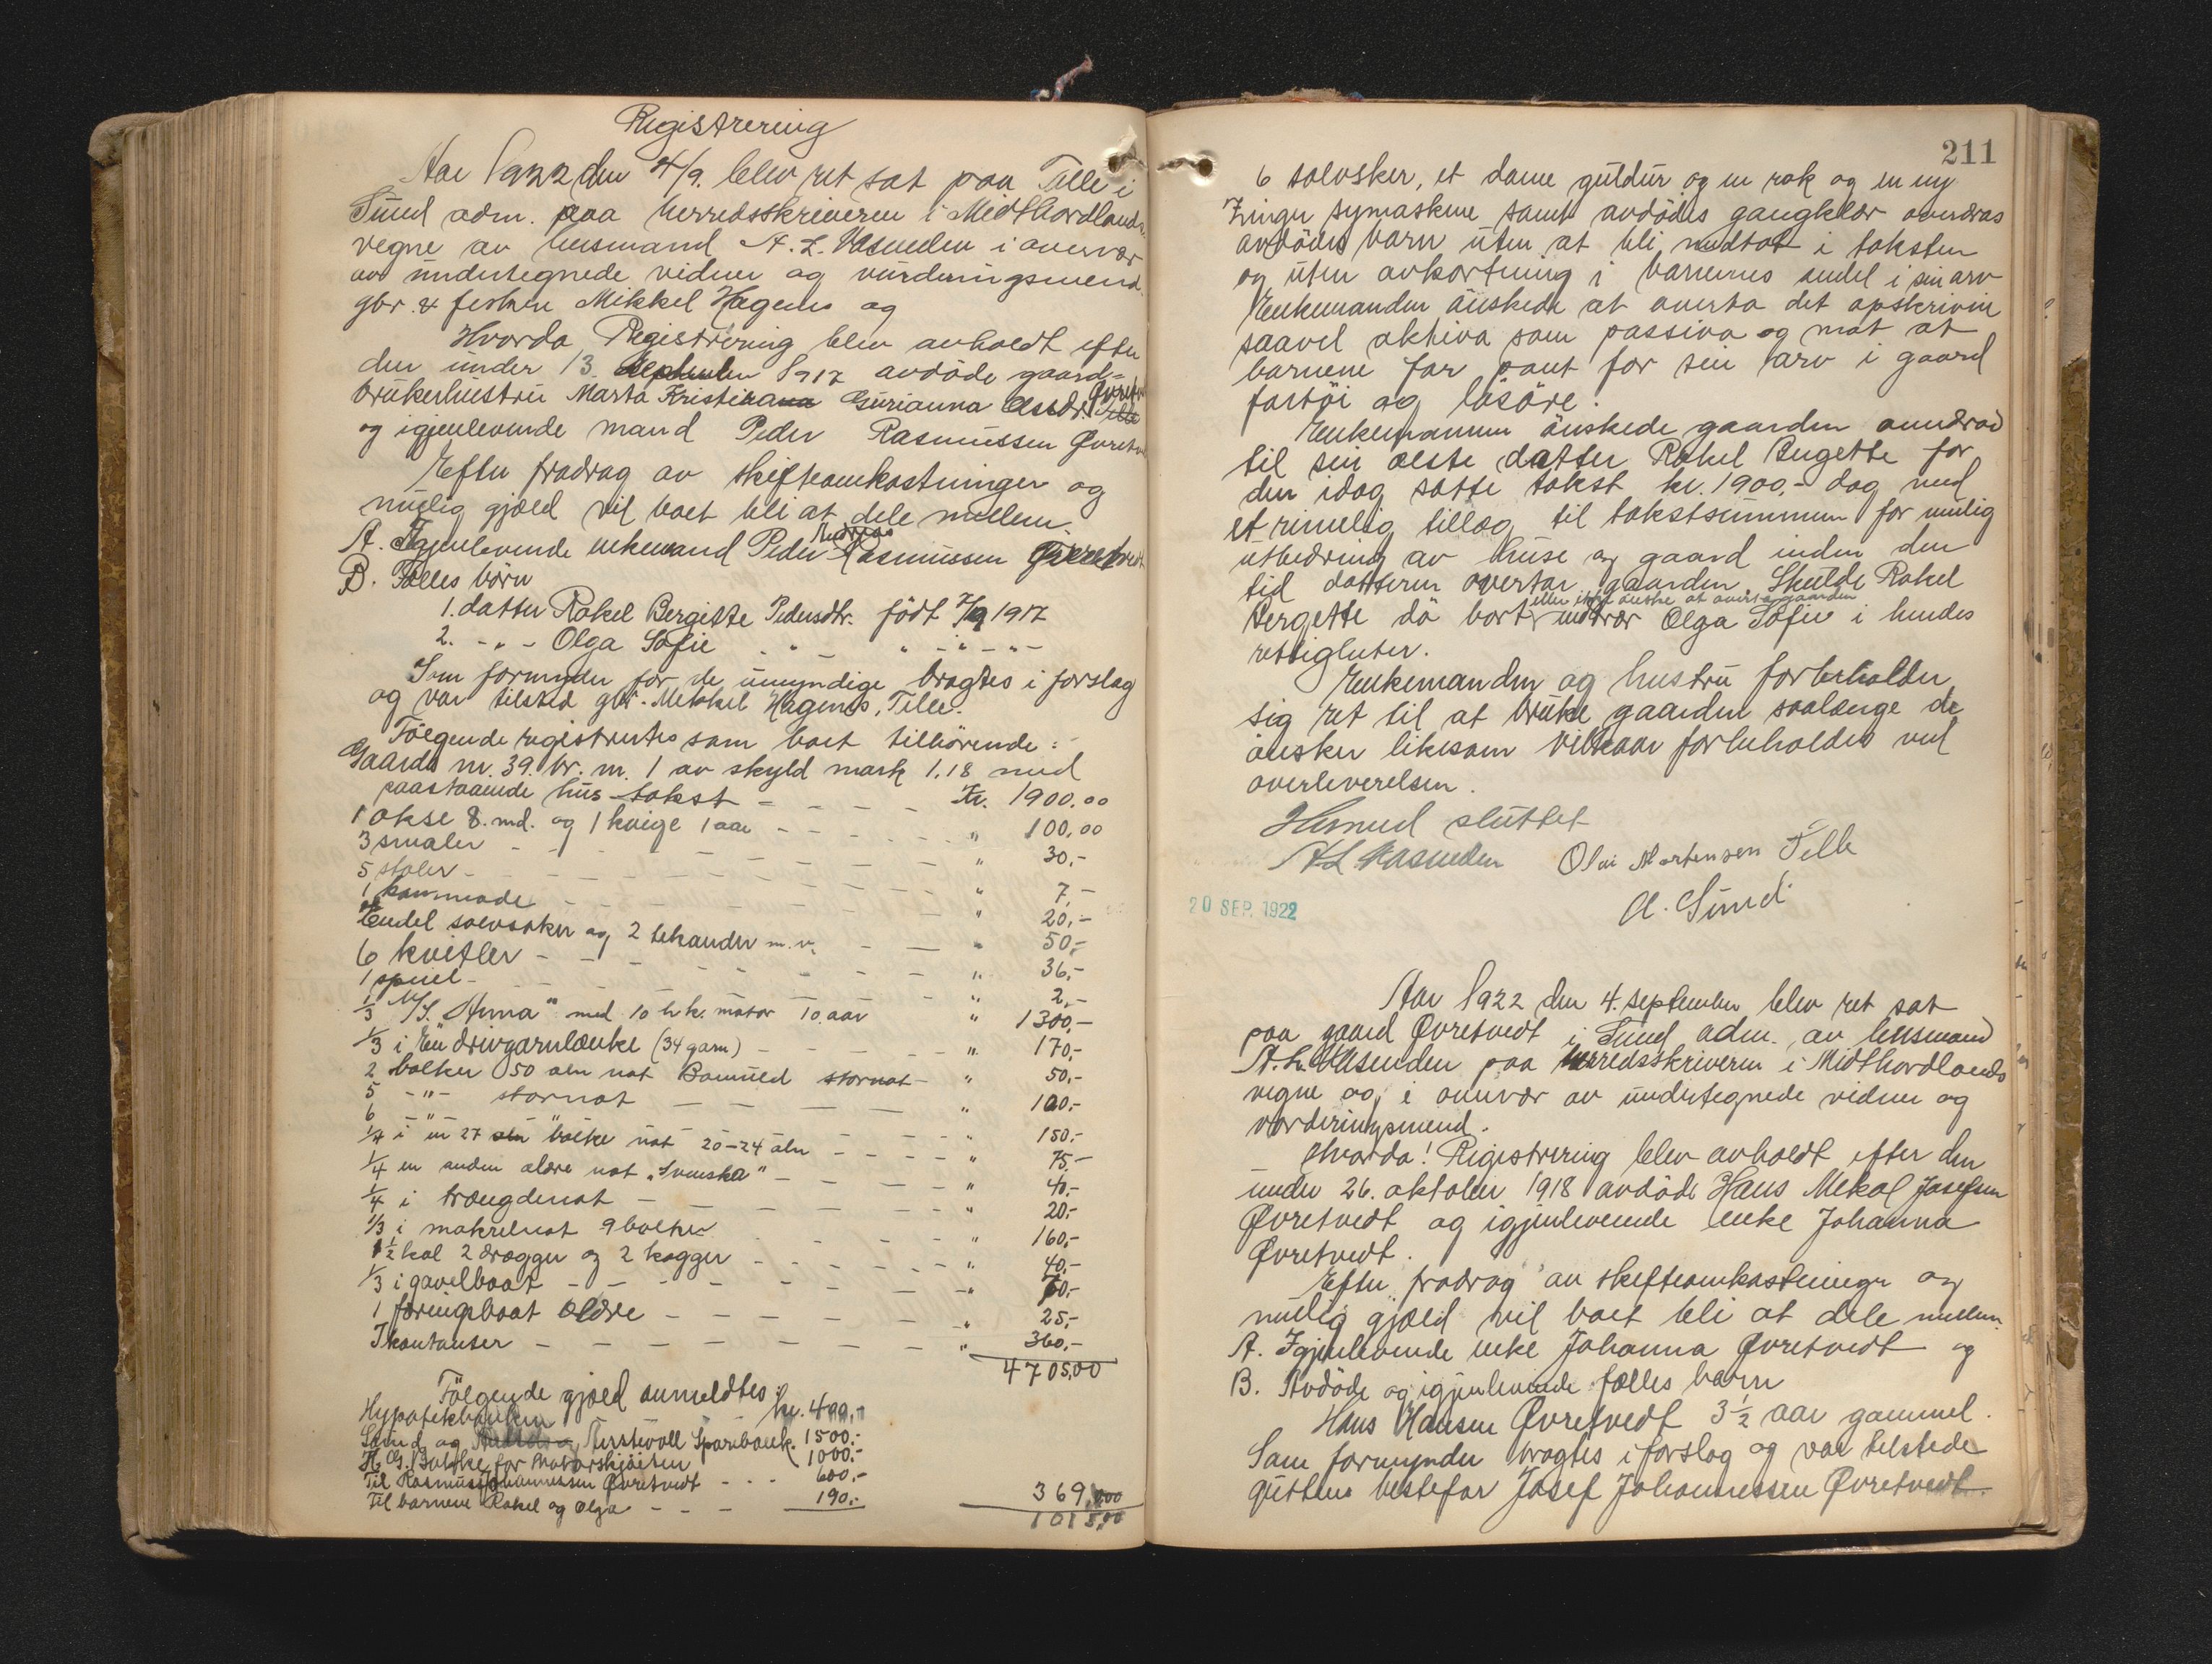 Registrering
Aar 1922 den 4/9. blev ret sat paa Telle i
Sund adm. paa herredsskriveren i Midthordlands
vegne av lensmand A. L. Vasenden i overvær
av undertegnede vidner og vurderingsmend.
gbr. & fester Mikkel Hagenes og
Hvorda Registrering blev avholdt efter
den under 13. september 1917 avdöde gaard-
brukerhustru Marta Kristiana Gurianna Olsdr. Øvretv
og igjenlevende mand Peder Rasmussen Øvretv
Efter fradrag av skifteomkostninger og
mulig gjæld vil boet bli at dele mellem
Andreas
A. Igjenlevende enkemand Peder Rasmussen Øvretvedt
B. Fælles börn
1. datter Rakel Bergitte Pedersdtr. födt 7/9 1917
2. -"- Olga Sofie " - " -"- -"-
Som formynder for de umyndige bragtes i forslag
og var tilsted gbr. Mikkel Hagenes, Telle.
Fölgende registrertes som boet tilhörende:
Gaards nr. 39. br. nr. 1 av skyld mark 1.18 med
paastaaende hus takst - - - - Kr. 1900.00
1 okse 8. md. og 1 kvige 1 aar - - - - " 100,00
3 smaler - - - - - " 30,-
5 stoler - - - - - " 7,-
1 kommode - - - - - " 20,-
Endel sølvsaker og 2 tekander m. v. - - " 50,-
6 kvitler - - - - - " 36,-
1 speil - - - - - " 2,-
1/3 M/S. "Anna" med 10 h.k. motor 10 aar " 1300,-
1/3 i En drivgarnlænke (34 garn) - - - - " 170,-
2 bolker 50 aln not Bomuld stornot - " 50,-
5 -"- stornot - - - - " 100,-
6 -"- - - - - " 150,-
1/4 i en 27 aln bolke not 20-24 aln - - - " 75,-
1/4 en anden ældre not "Svenska" - - - " 40,-
1/4 i trængdenot - - - - " 20,-
1/3 i makrelnot 9 bolker - - - - " 160,-
1 1/2 kal 2 drægger og 2 kagger - - - - " 40,-
1/3 i gavelbaat - - - - " 70,-
1 føringsbaat ældre - - - - " 25,-
I kontanter - - - - " 360,-
4705,00
Fölgende gjæld anmeldtes:
Hypotekbanken kr. 400,-
Sund og Austevoll Sparebank. 1500,-
H. G. Balchke for Motorskjöiten 1000,-
Til Rasmus Johannessen Øvretvedt - - - 600,-
Til barnene Rakel og Olga - - - 190,- 369,000
1015,00
211
6 sølvskeer, et dame guldur og en rok og en ny
Zinger symaskine samt avdödes gangklær overdras
avdödes barn uten at bli medtat i taksten
og uten avkortning i barnenes andel i sin arv
Enkemanden önskede at overta det opskrivne
saavel aktiva som passiva og mot at
barnene far pant for sin arv i gaard
fartöi og lösöre.
Enkemannen önskede gaarden overdrad
til sin ælste datter Rakel Bergette for
den idag satte takst kr. 1900,- dog med
et rimelig tillæg til takstsummen for mulig
utbedring av huse og gaard inden den
tid datteren overtar gaarden. Skulde Rakel
eller ikke önske at overta gaarden
Bergette dö bort, indtrær Olga Sofie i hendes
rettigheter.
Enkemanden og hustru forbeholder
sig ret til at bruke gaarden saalænge de
önsker likesom vilkaar forbeholdes ved
overleverelsen.
Hermed sluttet
A L Vasenden Olai Mortensen Telle
A. Sund
20 SEP. 1922
Aar 1922 den 4. september blev ret sat
paa gaard Øvretvedt i Sund adm. av lensmand
A. L. Vasenden paa herredsskriveren i Midthordlands
vegne og i overvær av undertegnede vidner og
vorderingsmend.
Hvorda! Registrering blev avholdt efter den
under 26. oktober 1918 avdöde Hans Mekal Josefsen
Øvretvedt og igjenlevende enke Johanna
Øvretvedt.
Efter fradrag av skifteomkostninger og
mulig gjæld vil boet bli at dele mellem
A. Igjenlevende enke Johanna Øvretvedt og
B. Avdöde og igjenlevende fælles barn
Hans Hansen Øvretvedt 3 1/2 aar gammel.
Som formynder bragtes i forslag og var tilstede
guttens bestefar Josef Johannessen Øvretvedt.